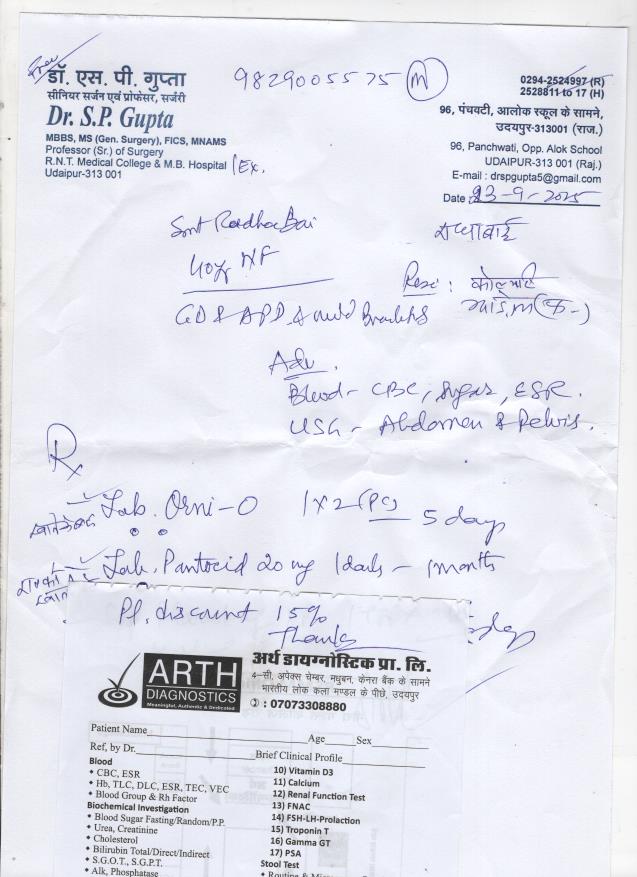 Free
9829005575 (M)
डॉ. एस. पी. गुप्ता
सीनियर सर्जन एवं प्रोफेसर, सर्जरी
Dr. S.P. Gupta
MBBS, MS (Gen. Surgery), FICS, MNAMS
Professor (Sr.) of Surgery
R.N.T. Medical College & M.B. Hospital Ex.
Udaipur-313 001
0294-2524997 (R)
2528811 to 17 (H)
96, पंचवटी, आलोक स्कूल के सामने,
उदयपुर-313001 (राज.)
96, Panchwati, Opp. Alok School
UDAIPUR-313 001 (Raj.)
E-mail : drspgupta5@gmail.com
Date 23-9-2025
Smt Radha Bai
राधाबाई
40y
Resi :
Adv.
Blood - CBC, Sugar, ESR.
USG - Abdomen & Pelvis.
Rx
Tab. Orni-O 1x2 (PC) 5 days
Tab. Pantocid 20 mg 1 daily - 1 months
Pl. discount 15%
Thanks
ARTH
DIAGNOSTICS
Meaningful, Authentic & Dedicated
अर्थ डायग्नोस्टिक प्रा. लि.
4-सी, अपेक्स चेम्बर, मधुबन, केनरा बैंक के सामने
भारतीय लोक कला मण्डल के पीछे, उदयपुर
: 07073308880
Patient Name Age Sex
Ref, by Dr. Brief Clinical Profile
Blood
• CBC, ESR
• Hb, TLC, DLC, ESR, TEC, VEC
• Blood Group & Rh Factor
Biochemical Investigation
• Blood Sugar Fasting/Random/P.P.
• Urea, Creatinine
• Cholesterol
• Bilirubin Total/Direct/Indirect
• S.G.O.T., S.G.P.T.
• Alk, Phosphatase
10) Vitamin D3
11) Calcium
12) Renal Function Test
13) FNAC
14) FSH-LH-Prolaction
15) Troponin T
16) Gamma GT
17) PSA
Stool Test
• Routine &